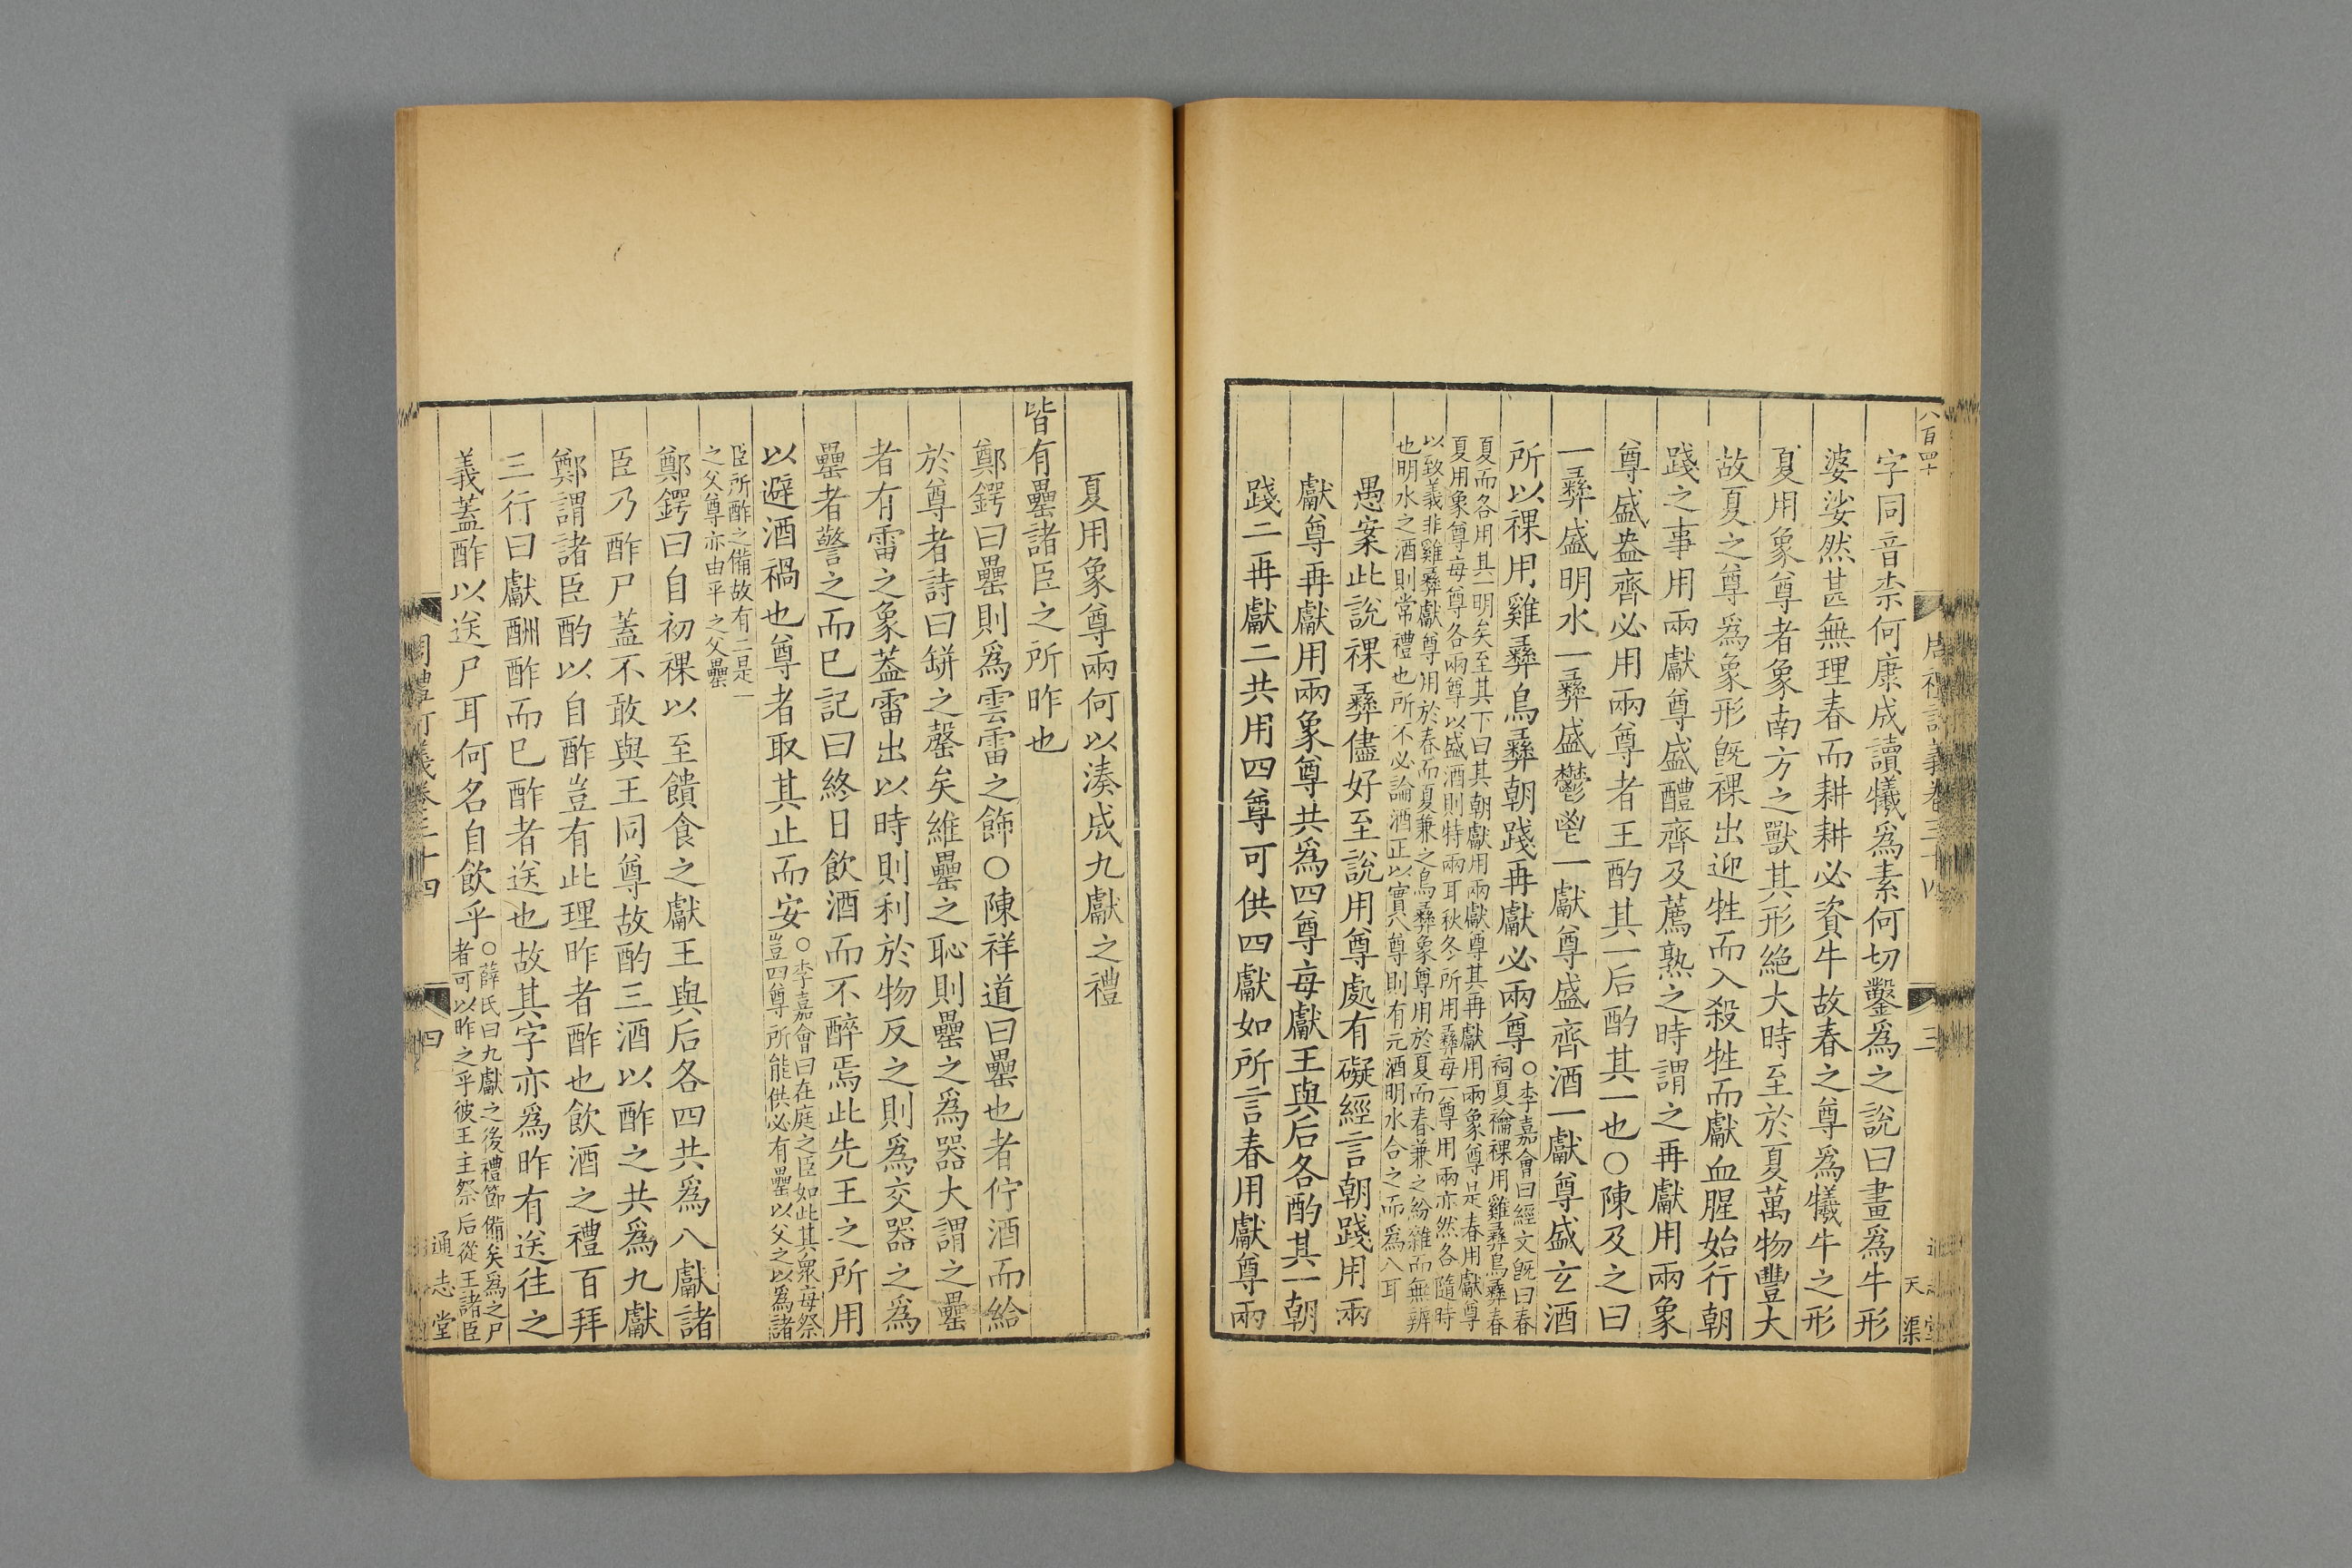 八百四十
字同音柰何康成讀犧爲素何切鑿爲之說曰畫爲牛形
婆娑然甚無理春而耕耕必資牛故春之尊爲犧牛之形
夏用象尊者象南方之獸其形絶大時至於夏萬物豐大
故夏之尊爲象形旣祼出迎牲而入殺牲而獻血腥始行朝
踐之事用兩獻尊盛醴齊及薦熟之時謂之再獻用兩象
尊盛盎齊必用兩尊者王酌其一后酌其一也○陳及之曰
一彝盛明水一彝盛鬱鬯一獻尊盛齊酒一獻尊盛玄酒
所以祼用雞彝鳥彝朝踐再獻必兩尊○李嘉會曰經文旣曰春
祠夏禴祼用雞彝鳥彝春
夏而各用其一明矣至其下曰其朝獻用兩獻尊其再獻用兩象尊是春用獻尊
夏用象尊每尊各兩尊以盛酒則特兩耳秋冬所用彝每一尊用兩亦然各隨時
以致義非雞彝獻尊用於春而夏兼之鳥彝象尊用於夏而春兼之紛雜而無辨
也明水之酒則常禮也所不必論酒正以實八尊則有元酒明水合之而爲八耳
愚案此說祼彝儘好至說用尊處有礙經言朝踐用兩
獻尊再獻用兩象尊共爲四尊每獻王與后各酌其一朝
踐二再獻二共用四尊可供四獻如所言春用獻尊兩
夏用象尊兩何以湊成九獻之禮
皆有罍諸臣之所昨也
鄭鍔曰罍則爲雲雷之飾○陳祥道曰罍也者佇酒而給
於尊者詩曰缾之罄矣維罍之恥則罍之爲器大謂之罍
者有雷之象葢雷出以時則利於物反之則爲交器之爲
罍者警之而已記曰終日飲酒而不醉焉此先王之所用
以避酒禍也尊者取其止而安○李嘉會曰在庭之臣如此其衆每祭
豈四尊所能供必有罍以父之以爲諸
臣所酢之備故有二是一
之父尊亦由乎之父罍
鄭鍔曰自初祼以至饋食之獻王與后各四共爲八獻諸
臣乃酢尸蓋不敢與王同尊故酌三酒以酢之共爲九獻
鄭謂諸臣酌以自酢豈有此理昨者酢也飲酒之禮百拜
三行曰獻酬酢而已酢者送也故其字亦爲昨有送往之
義蓋酢以送尸耳何名自飲乎○薛氏曰九獻之後禮節備矣爲之尸
者可以昨之乎彼王主祭后從王諸臣
四
通志堂